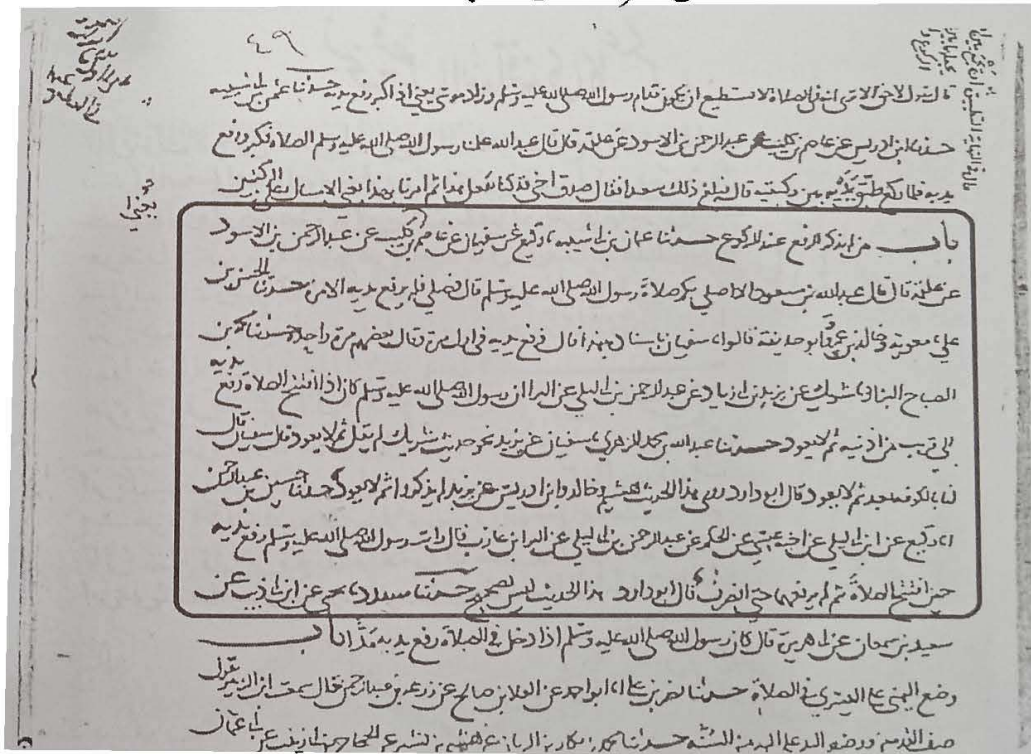 ٤٩
قال يقول لاحق الا ترى انه في الصلاة لا يستطيع ان يكون قدام رسول الله صلى الله عليه وسلم وزاد موسى يعني اذا كبر رفع يديه حدثنا عثمن بن ابي شيبة
حدثنا ابن ادريس عن عاصم بن كليب عن عبد الرحمن بن الاسود عن علقمة قال قال عبد الله علمنا رسول الله صلى الله عليه وسلم الصلاة فكبر ورفع
يديه فلما ركع طبق يديه بين ركبتيه قال فبلغ ذلك سعدا فقال صدق اخي قد كنا نفعل هذا ثم امرنا بهذا يعني الامساك على الركبتين
باب من لم يذكر الرفع عند الركوع حدثنا عثمان بن ابي شيبة نا وكيع عن سفيان عن عاصم بن كليب عن عبد الرحمن بن الاسود
عن علقمة قال قال عبد الله بن مسعود الا اصلي بكم صلاة رسول الله صلى الله عليه وسلم قال فصلى فلم يرفع يديه الا مرة حدثنا الحسن بن
علي نا معوية وخالد بن عمرو وابو حذيفة قالوا نا سفيان باسناده بهذا قال فرفع يديه في اول مرة وقال بعضهم مرة واحدة حدثنا محمد بن
الصباح البزاز نا شريك عن يزيد بن ابي زياد عن عبد الرحمن بن ابي ليلى عن البرا ان رسول الله صلى الله عليه وسلم كان اذا افتتح الصلاة رفع يديه
الى قريب من اذنيه ثم لا يعود حدثنا عبد الله بن محمد الزهري نا سفيان عن يزيد نحو حديث شريك لم يقل ثم لا يعود قال سفيان قال
لنا بالكوفة بعد ثم لا يعود قال ابو دارد روى هذا الحديث هشيم وخالد وابن ادريس عن يزيد لم يذكروا ثم لا يعود حدثنا حسين بن عبد الرحمن
انا وكيع عن ابن ابي ليلى عن اخيه عيسى عن الحكم عن عبد الرحمن بن ابي ليلى عن البرا بن عازب قال رايت رسول الله صلى الله عليه وسلم رفع يديه
حين افتتح الصلاة ثم لم يرفعهما حتى انصرف قال ابو دارد هذا الحديث ليس بصحيح حدثنا مسدد نا يحيى عن ابن ابي ذيب عن
سعيد بن سمعان عن ابي هريرة قال كان رسول الله صلى الله عليه وسلم اذا دخل في الصلاة رفع يديه مدا باب
وضع اليمنى على اليسرى في الصلاة حدثنا نصر بن علي انا ابو احمد عن العلا بن صالح عن زرعة بن عبد الرحمن قال سمعت ابن الزبير يقول
صف القدمين ووضع اليد على اليد من السنة حدثنا محمد بن بكار بن الريان عن هشيم بن بشير عن الحجاج بن ابي زينب عن ابي عثمان